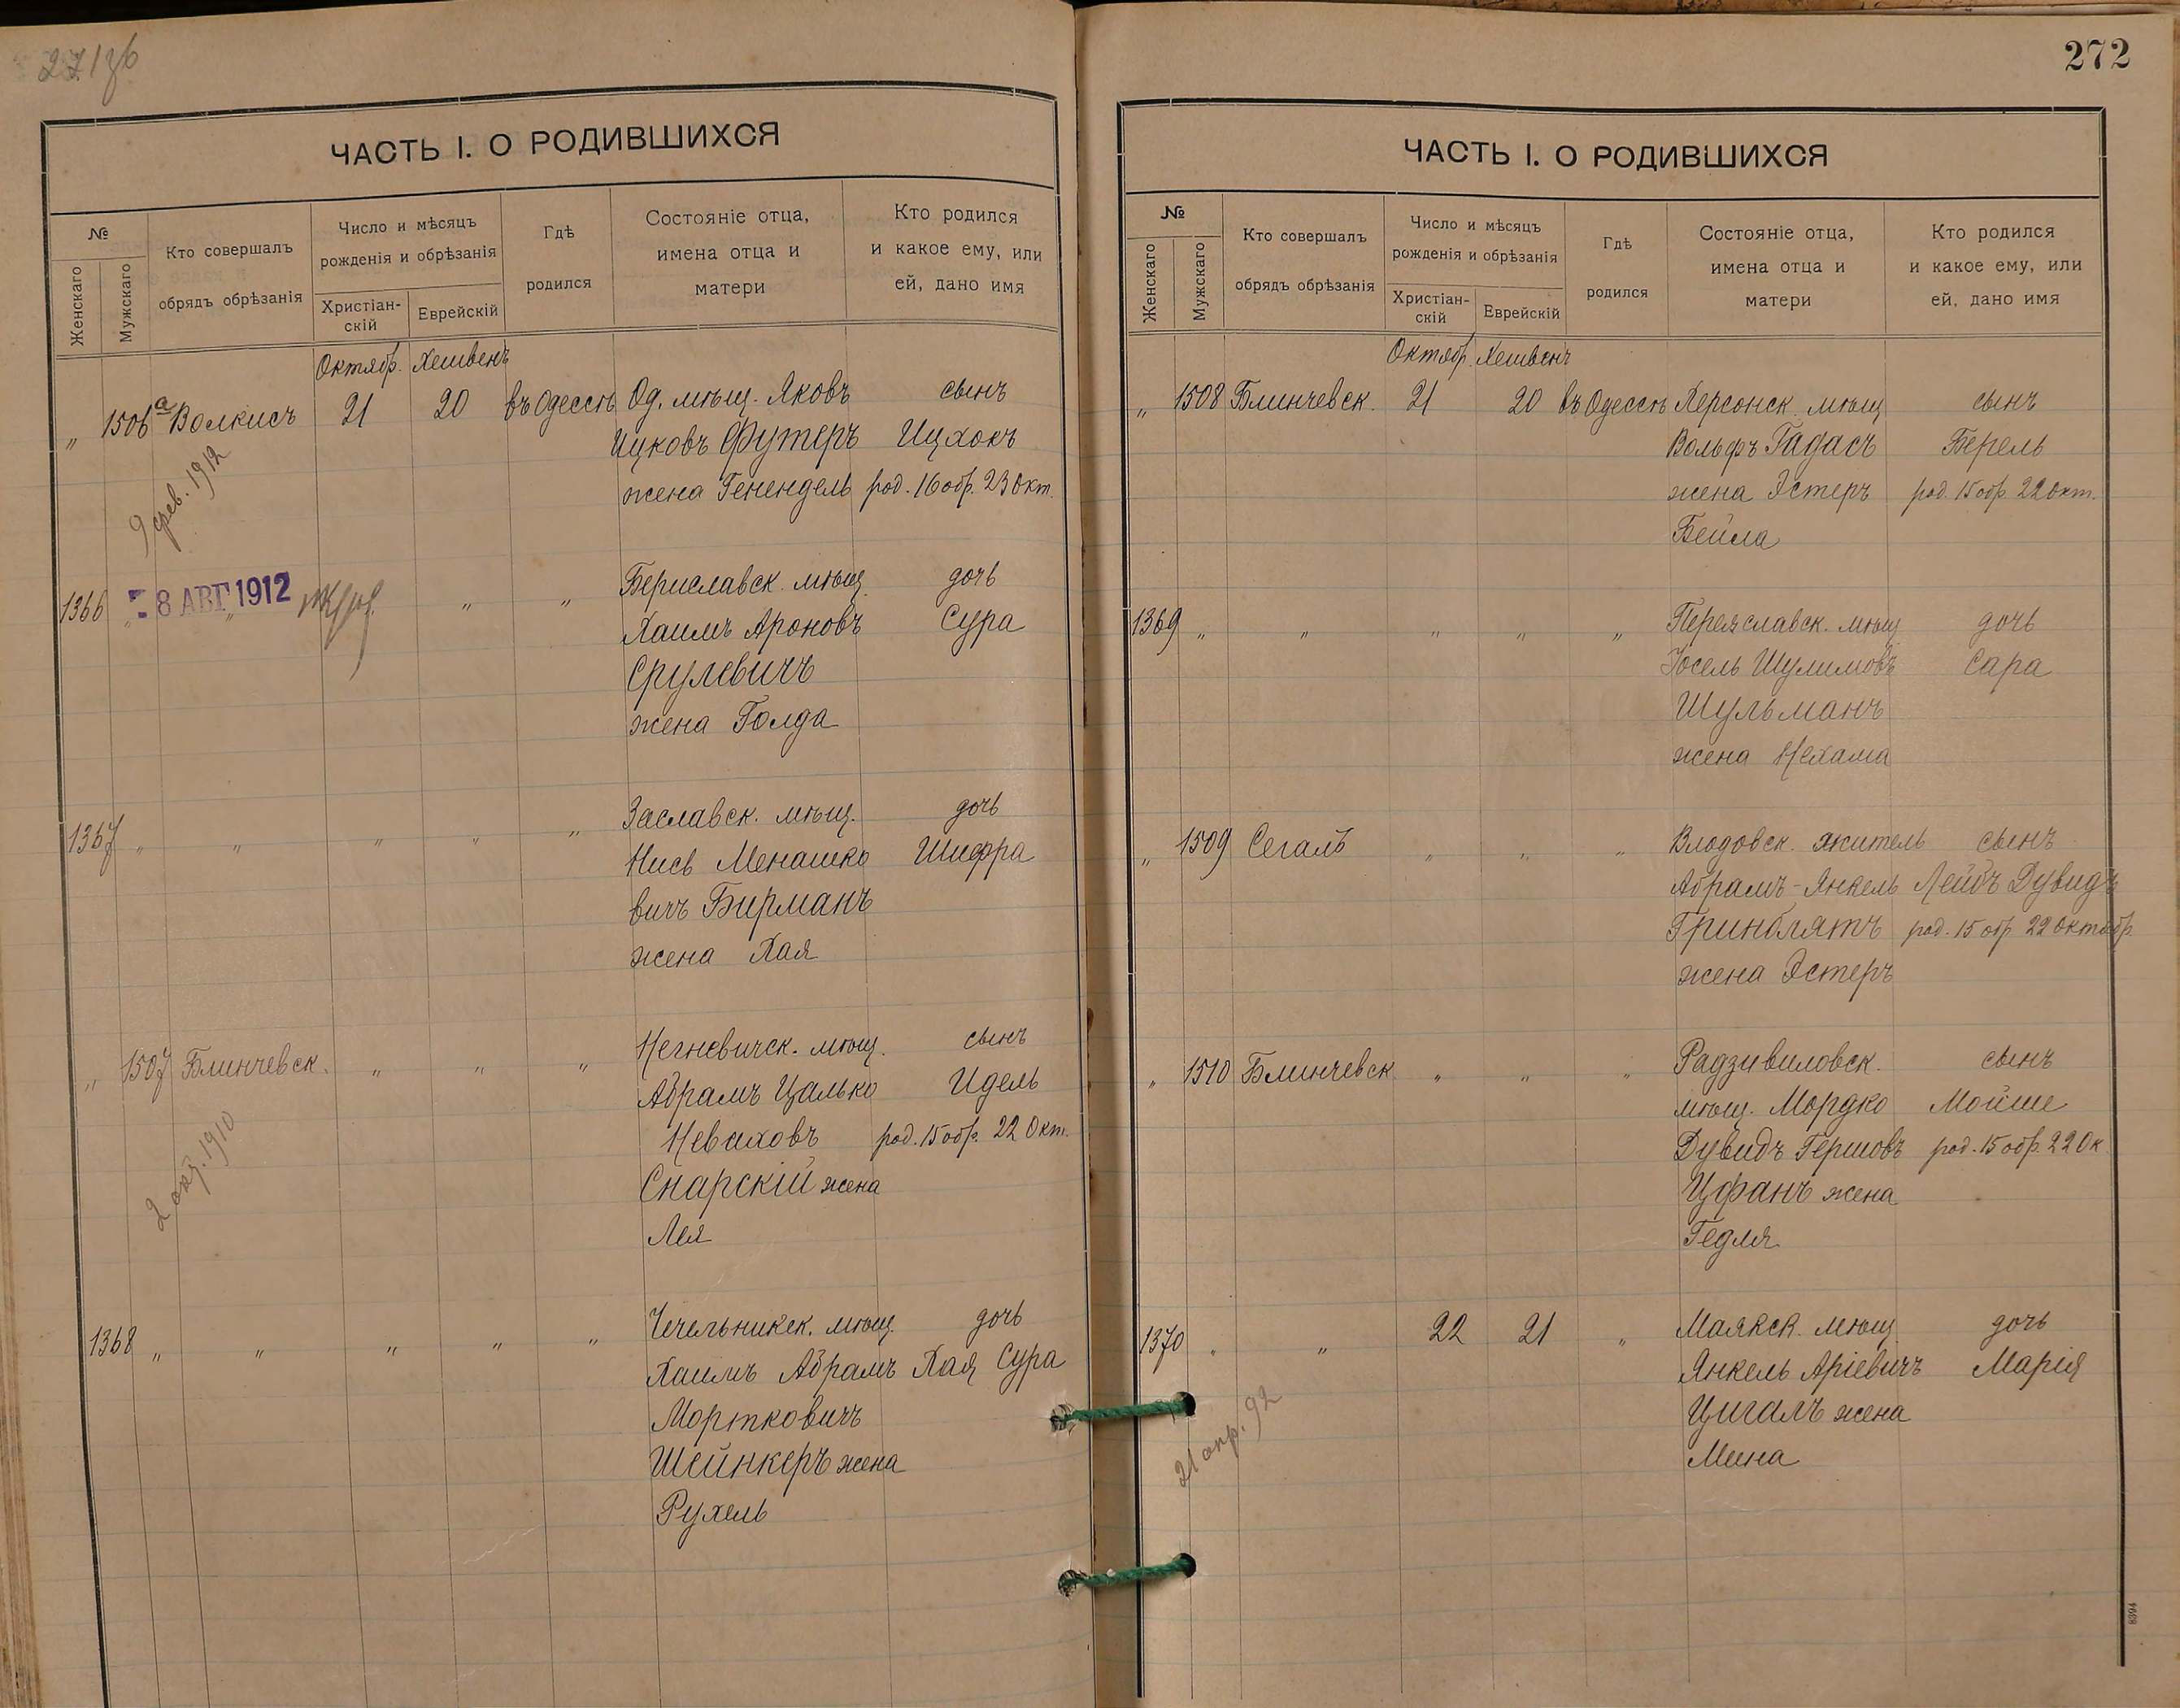 271 об
ЧАСТЬ I. О РОДИВШИХСЯ
№
Женскаго
Мужскаго
Кто совершалъ
обрядъ обрѣзанія
Число и мѣсяцъ
рожденія и обрѣзанія
Христіан-
скій
Еврейскій
Гдѣ
родился
Состояніе отца,
имена отца и
матери
Кто родился
и какое ему, или
ей, дано имя
Октябр. Хешвенъ
„ 1506а Волкисъ 21 20 въ Одессѣ Од. мѣщ. Яковъ сынъ
Ицковъ Футеръ Ицхокъ
жена Генендель род. 16 обр. 23 Окт.
9 фев. 1912
1366 „ 8 АВГ 1912 „ „ Бериславск. мѣщ. дочь
Хаимъ Ароновъ Сура
Срулевичъ
жена Голда
1367 „ „ „ „ „ Заславск. мѣщ. дочь
Нись Менашко Шифра
вичъ Бирманъ
жена Хая
„ 1507 Блинчевск. „ „ „ Негневичск. мѣщ. сынъ
Абрамъ Цалько Идель
Неваховъ род. 15 обр. 22 Окт.
Снарскій жена
Лея
2 окт. 1910
1368 „ „ „ „ „ Чечельникск. мѣщ. дочь
Хаимъ Абрамъ Хая Сура
Мортковичъ
Шейнкеръ жена
Рухель
272
ЧАСТЬ I. О РОДИВШИХСЯ
№
Женскаго
Мужскаго
Кто совершалъ
обрядъ обрѣзанія
Число и мѣсяцъ
рожденія и обрѣзанія
Христіан-
скій
Еврейскій
Гдѣ
родился
Состояніе отца,
имена отца и
матери
Кто родился
и какое ему, или
ей, дано имя
Октябр. Хешвенъ
„ 1508 Блинчевск. 21 20 въ Одессѣ Херсонск. мѣщ сынъ
Вольфъ Гадасъ Берель
жена Эстеръ род. 15 обр. 22 окт.
Бейла
1369 „ „ „ „ „ Переяславск. мѣщ дочь
Іосель Шулимовъ Сара
Шульманъ
жена Нехама
„ 1509 Сегалъ „ „ „ Влодовск. житель сынъ
Абрамъ-Янкель Лейбъ Дувидъ
Гринблятъ род. 15 обр 22 Октябр.
жена Эстеръ
„ 1510 Блинчевск „ „ „ Радзивиловск. сынъ
мѣщ. Мордко Мойше
Дувидъ Гершовъ род. 15 обр. 22 Ок
Цфанъ жена
Гедля
1370 „ „ 22 21 „ Маякск. мѣщ дочь
Янкель Аріевичъ Марія
Цигалъ жена
Мина
21 апр. 92
8394